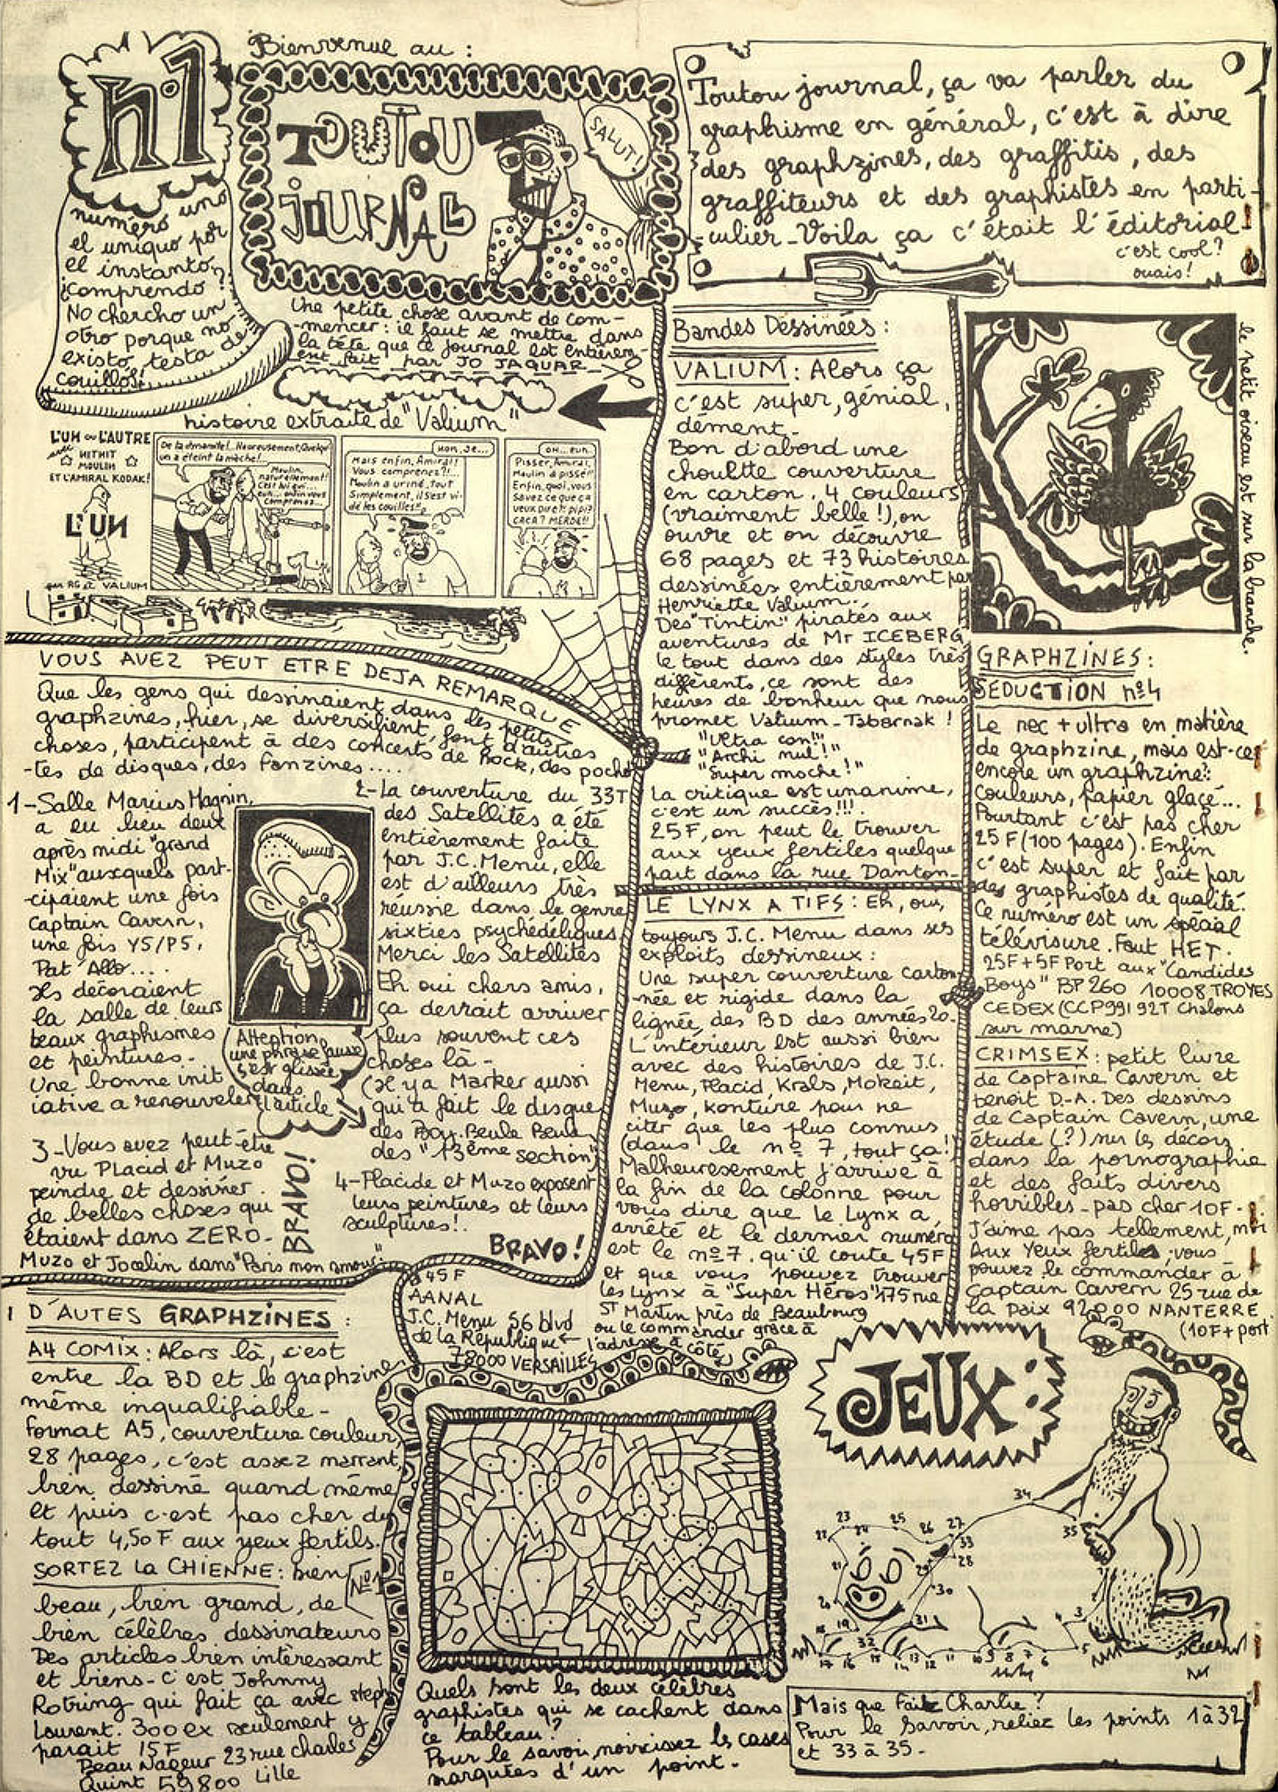 n°1
Bienvenue au :
TOUTOU
JOURNAL
SALUT!
Toutou journal, ça va parler du
graphisme en général, c'est à dire
des graphzines, des graffitis, des
graffiteurs et des graphistes en parti-
-culier _ Voila ça c'était l'éditorial
c'est cool?
ouais!
numéro uno
el uniquo por
el instanto,
¿comprendo?
No chercho un
otro porque no
existo, testa de
couillos!
Une petite chose avant de com-
-mencer: il faut se mettre dans
la tête que ce journal est entièrem
ent fait par JO JAQUAR
histoire extraite de "Valium"
L'UN ou L'AUTRE
avec
HITHIT
MOULIN
ET L'AMIRAL KODAK!
L'UN
par RG et VALIUM
De la dynamite!.. Heureusement, Quelqu'
un a éteint la mèche!...
Moulin,
naturellement!!
C'est lui qui...
euh... enfin vous
Comprenez...
Non, je...
Mais enfin, Amiral!
Vous comprenez?!...
Moulin a uriné, tout
Simplement, il s'est vi-
dé les couilles!!
OH... euh..
Pisser, Amiral,
Moulin a pissé!!
Enfin, quoi, vous
Savez ce que ça
veux dire?! pipi?
CACA? MERDE!!
VOUS AVEZ PEUT ETRE DEJA REMARQUE
Que les gens qui dessinaient dans les petits
graphzines, hier, se diversifient, font d'autres
choses, participent à des concerts de Rock, des poche
-tes de disques, des fanzines....
1-Salle Marius Magnin,
a eu lieu deux
après midi "grand
Mix" auxquels part-
-cipaient une fois
Captain Cavern,
une fois Y5/P5,
Pat Allo....
Ils décoraient
la salle de leurs
beaux graphismes
et peintures.
Une bonne init
iative a renouveler
Attention
une phrase fausse
s'est glissée
dans
l'article
2-La couverture du 33T
des Satellites a été
entièrement faite
par J.C. Menu, elle
est d'ailleurs très
réussie dans le genre
sixties psychédéliques
Merci les Satellites
Eh oui chers amis,
ça devrait arriver
plus souvent ces
choses là -
(Il y a Marker aussi
qui a fait le disque
des Boy. Beule Beul
des "13ème section")
3-Vous avez peut-être
vu Placid et Muzo
peindre et dessiner
de belles choses qui
étaient dans ZERO-
Muzo et Jocelin dans "Paris mon amour"
BRAVO!
4-Placide et Muzo exposent
leurs peintures et leurs
sculptures!.
BRAVO!
Bandes Dessinées:
VALIUM: Alors ça
c'est super, génial,
dément_
Bon d'abord une
choutte couverture
en carton, 4 couleurs
(vraiment belle!), on
ouvre et on découvre
68 pages et 73 histoires
dessinées entièrement par
Henriette Valium.
Des "Tintin" piratés aux
aventures de Mr ICEBERG,
le tout dans des styles très
différents, ce sont des
heures de bonheur que nous
promet Valium - Tabernak!
"Ultra con!"
"Archi nul!"
"Super moche!"
La critique est unanime,
c'est un succès!!!
25F, on peut le trouver
aux yeux fertiles quelque
part dans la rue Danton_
LE LYNX A TIFS: Eh, oui,
toujours J.C. Menu dans ses
exploits dessineux:
Une super couverture carton-
-née et rigide dans la
lignée des BD des années 20.
L'intérieur est aussi bien
avec des histoires de J.C.
Menu, Placid, Krabs, Mokeit,
Muzo, konture pour ne
citer que les plus connus
(dans le nº 7, tout ça!)
Malheuresement j'arrive à
la fin de la colonne pour
vous dire que le Lynx a
arrêté et le dernier numéro
est le nº7. qu'il coute 45F
et que vous pouvez trouver
les Lynx à "Super Héros" 175 rue
ST Martin près de Beaubourg
ou le commander grâce à
l'adresse à côté
à 45F
AANAL
J.C. Menu 56 blvd
de la République
78000 VERSAILLES
le petit oiseau est sur la branche.
GRAPHZINES:
SEDUCTION nº4
Le nec + ultra en matière
de graphzine, mais est-ce
encore un graphzine?:
Couleurs, papier glaçé...
Pourtant c'est pas cher
25F (100 pages). Enfin
c'est super et fait par
des graphistes de qualité.
Ce numéro est un spécial
télévisure. Faut HET.
25F+5F Port aux "Candides
Boys" BP 260 10008 TROYES
CEDEX (CCP 991 92T Chalons
sur marne)
CRIMSEX: petit livre
de Captaine Cavern et
benoit D.-A. Des dessins
de Captain Cavern, une
étude (?) sur les décors
dans la pornographie
et des faits divers
horribles - pas cher 10F-
J'aime pas tellement, moi
Aux Yeux fertiles vous
pouvez le commander à
Captain Cavern 25 rue de
la paix 92000 NANTERRE
(10F+port
D'AUTES GRAPHZINES:
A4 COMIX: Alors là, c'est
entre la BD et le graphzine
même inqualifiable-
format A5, couverture couleur,
28 pages, c'est assez marrant,
bien dessiné quand même
et puis c'est pas cher du
tout 4,50F aux yeux fertils.
SORTEZ La CHIENNE: bien
Nº1
beau, bien grand, de
bien célèbres dessinateurs
Des articles bien intéressant
et biens - C'est Johnny
Rotring qui fait ça avec steph
Laurent. 300 ex seulement y
parait 15F
Beau Nageur 23 rue charles
Quint 59800 Lille
Quels sont les deux célèbres
graphistes qui se cachent dans
ce tableau?
Pour le savoir, noircissez les cases
marquées d'un point.
JEUX:
Mais que fait Charlie?
Pour le savoir, reliez les points 1 à 32
et 33 à 35-